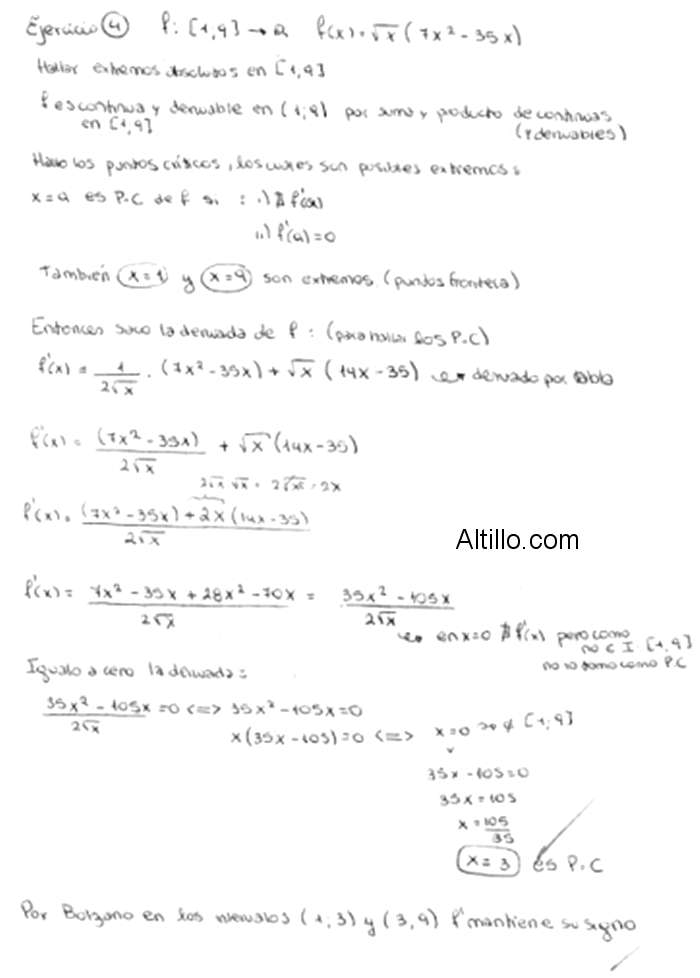 Ejercicio 4 f: [1,9] → R f(x) = √x (7x² - 35x)
Hallar extremos absolutos en [1,9]
f es continua y derivable en (1;9) por suma y producto de continuas
en [1,9] (y derivables)
Hallo los puntos críticos, los cuales son posibles extremos:
x = a es P.C de f si : i) ∄ f'(a)
ii) f'(a) = 0
También x = 1 y x = 9 son extremos (puntos frontera)
Entonces saco la derivada de f : (para hallar los P.C)
f'(x) = 1/2√x . (7x² - 35x) + √x (14x - 35) derivado por tabla
f'(x) = (7x² - 35x)/2√x + √x (14x - 35)
2√x √x = 2√x² = 2x
f'(x) = (7x² - 35x) + 2x (14x - 35)/2√x
Altillo.com
f'(x) = 7x² - 35x + 28x² - 70x/2√x = 35x² - 105x/2√x
en x=0 ∄ f'(x) pero como
no ∈ I [1,9]
no lo tomo como P.C
Igualo a cero la derivada:
35x² - 105x/2√x = 0 <=> 35x² - 105x = 0
x (35x - 105) = 0 <=> x = 0 → ∉ [1,9]
v
35x - 105 = 0
35x = 105
x = 105/35
x = 3 es P.C
Por Bolzano en los intervalos (1,3) y (3,9) f' mantiene su signo